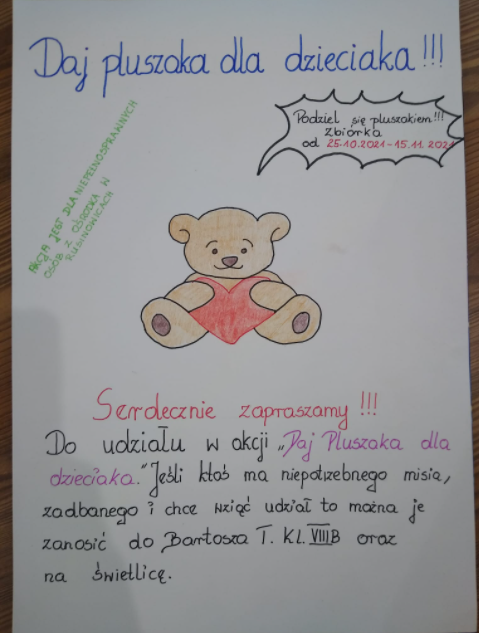 Daj pluszaka dla dzieciaka!!!
Podziel się pluszakiem!!!
Zbiórka
od 25.10.2021-15.11.2021
AKCJA JEST DLA NIEPEŁNOSPRAWNYCH
OSÓB Z OŚRODKA W
RUDNOWICACH
Serdecznie zapraszamy!!!
Do udziału w akcji „Daj Pluszaka dla
dzieciaka." Jeśli ktoś ma niepotrzebnego misia,
zadbanego i chce wziąć udział to można je
zanosić do Bartosza T. Kl. VIIIB oraz
na świetlicę.